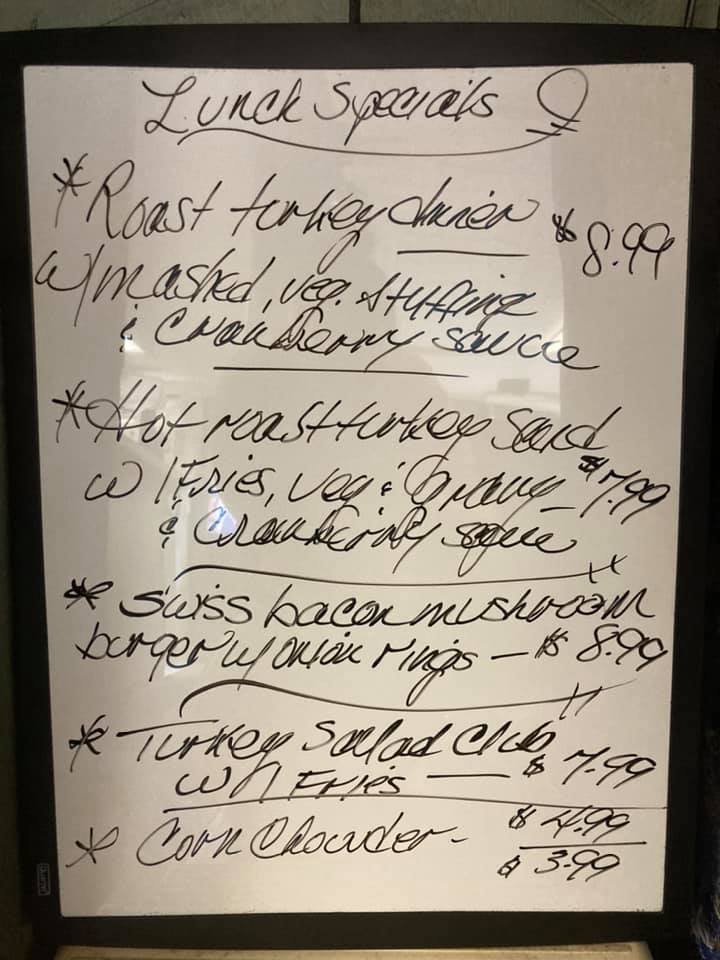 Lunch Specials
* Roast turkey dinner $8.99
w/mashed, veg. stuffing
& Cranberry sauce
* Hot roast turkey Sand
w/Fries, veg & Gravy - $7.99
& Cranberry sauce
* Swiss bacon mushroom
burger w/ onion rings - $8.99
* Turkey Salad Club
w/Fries - $7.99
* Corn Chowder - $4.99
$3.99